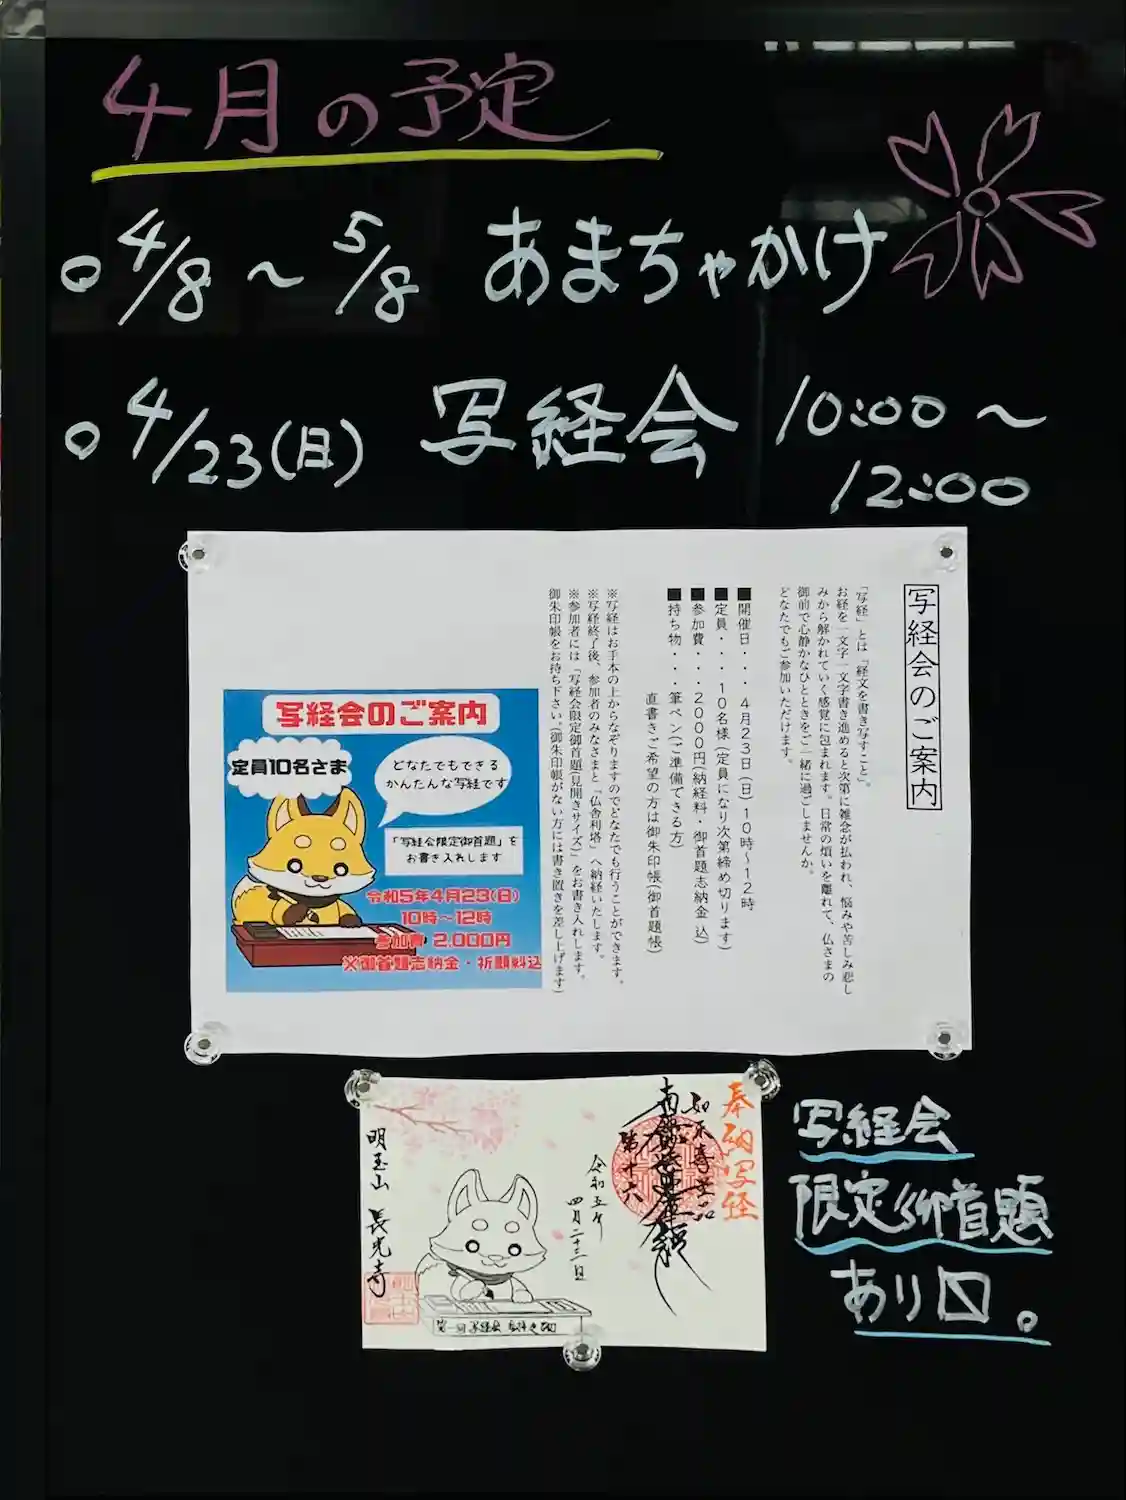 4月の予定
○4/8～5/8 あまちゃかけ
○4/23(日) 写経会 10:00～
12:00
写経会のご案内
「写経」とは「経文を書き写すこと」。
お経を一文字一文字書き進めると次第に雑念が払われ、悩みや苦しみ悲し
みから解かれていく感覚に包まれます。日常の煩いを離れて、仏さまの
御前で心静かなひとときをご一緒に過ごしませんか。
どなたでもご参加いただけます。
■開催日・・・4月23日(日)10時～12時
■定員・・・10名様(定員になり次第締め切ります)
■参加費・・・2000円(納経料・御首題志納金込)
■持ち物・・・筆ペン(ご準備できる方)
直書きご希望の方は御朱印帳(御首題帳)
※写経はお手本の上からなぞりますのでどなたでも行うことができます。
※写経終了後、参加者のみなさまと「仏舎利塔」へ納経いたします。
※参加者には「写経会限定御首題(見開きサイズ)」をお書き入れします。
御朱印帳をお持ち下さい。(御朱印帳がない方には書き置きを差し上げます)
写経会のご案内
定員10名さま
どなたでもできる
かんたんな写経です
「写経会限定御首題」を
お書き入れします
令和5年4月23(日)
10時～12時
参加費 2,000円
※御首題志納金・祈願料込
奉納写経
如来寿量品
第十六
南無妙法蓮華経
令和五年
四月二十三日
明玉山 長光寺
第一回写経会
写経会
限定御首題
あり〼。